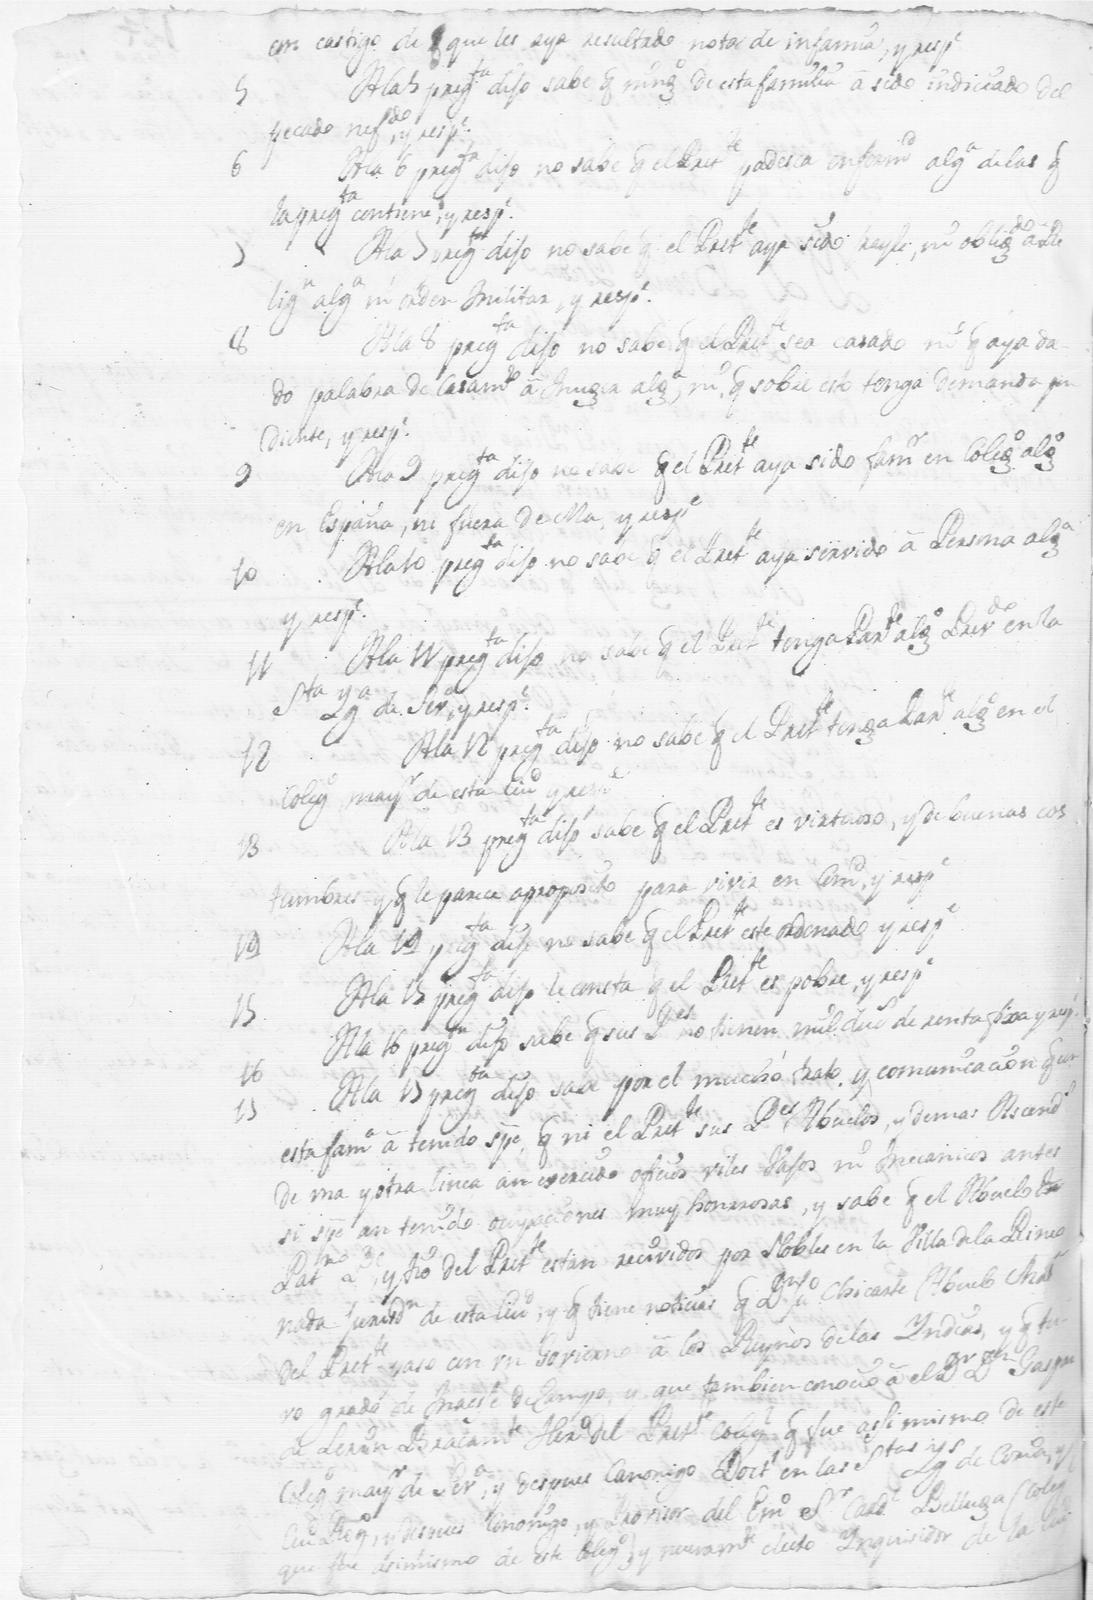 con castigo de q que les aya resultado nota de infamia, y respe
5 Ala 5 pregta dijo sabe q ningo de esta familia â sido indiciado del
pecado nefdo, y respe.
6 Ala 6 pregta dijo no sabe q el Prette padesca enfermd alga de las q
la pregta contiene, y respe.
7 Ala 7 pregta dijo no sabe q el Prette aya sido frayle, ni obligdo â Re
lign alga ni orden Militar, y respe.
8 Ala 8 pregta dijo no sabe q el Prette sea casado ni q aya da-
do palabra de Casamto â Muger alga, ni q sobre esto tenga demanda pen
diente, y respe.
9 Ala 9 pregta dijo no sabe q el Prette aya sido famr en Colego algo
en España, ni fuera de ella, y respe
10 Ala 10 pregta dijo no sabe q el Prette aya servido â Persona alga
y respe.
11 Ala 11 pregta dijo no sabe q el Prette tenga Parte algo Prevdo en la
Sta Yga de Seva, y respe.
12 Ala 12 pregta dijo no sabe q el Prette tenga Parte algo en el
Colego mayr de esta Ciud y respe
13 Ala 13 pregta dijo sabe q el Prette es virtuoso, y de buenas cos
tumbres y q le parece aproposito para vivir en Comd, y respe
14 Ala 14 pregta dijo no sabe q el Prette este ordenado y respe
15 Ala 15 pregta dijo le consta q el Prette es pobre, y respe
16 Ala 16 pregta dijo sabe q sus Pes no tienen mil duc de renta fixa y resp.
17 Ala 17 pregta dijo sabe por el mucho trato, y comunicacion q con
esta fama â tenido spe, q ni el Prette sus Pes Abuelos, y demas Ascends
de una y otra linea an exercido oficios viles bajos ni Mecanicos antes
si spe an tenido ocupaciones muy honrrosas, y sabe q el Abuelo
Patno Pe, y tio del Prette estan recividos por Nobles en la Villa de la Rinco
nada Jurisdn de esta Ciud, y q tiene noticias q Dn Chicarte Abuelo Matr
del Prette paso con un Govierno â los Reynos de las Yndias, y q tu-
vo grado de Maese de Campo, y que tambien conocio â el Dn Gaspar
de Leran Bracamte Hero del Prette Coleg q fue asi mismo de este
Colego mayr de Seva, y despues Canonigo Doctl en las Stas Ygs de Coria, y
Ciud Rego, y despues Canonigo, y Provisor del Emo Sr Card Belluga (Coleg
que fue asimismo de este Colego) y nuevamte electo Ynquisidor de la